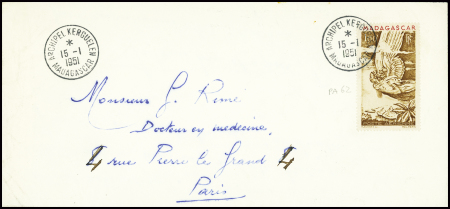 ARCHIPEL KERGUELEN
*
15 -1
1951
MADAGASCAR
ARCHIPEL KERGUELEN
*
15 -1
1951
MADAGASCAR
MADAGASCAR
PA 62
Monsieur G. Remé
Docteur en medecine,
4 rue Pierre le Grand 4
Paris